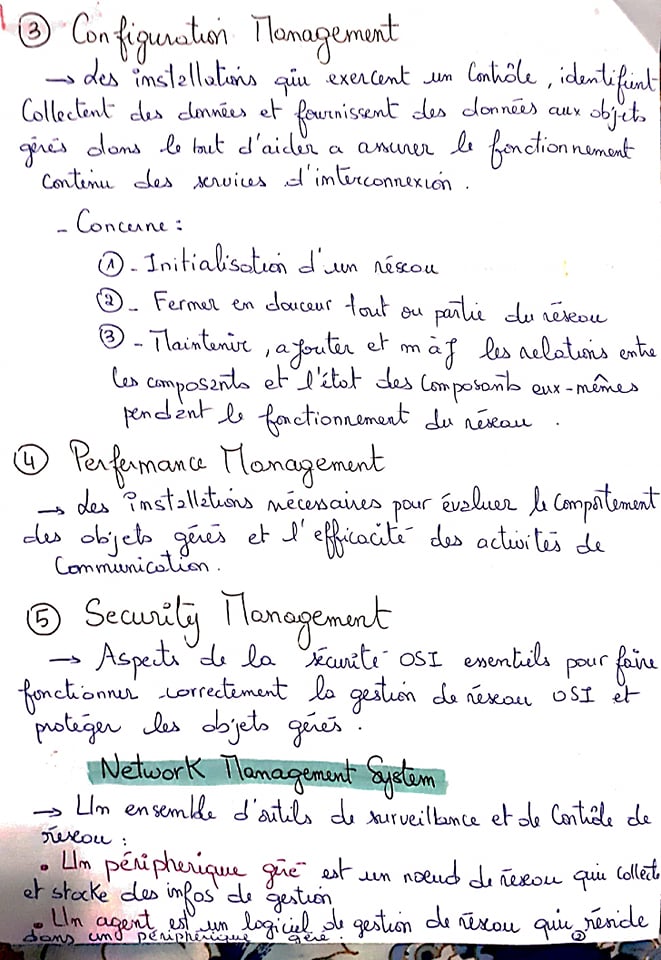 ③ Configuration Management
→ des installations qui exercent un Contrôle, identifient
Collectent des données et fournissent des données aux objets
gérés dans le but d'aider a assurer le fonctionnement
Contenu des services d'interconnexion.
- Concerne :
① - Initialisation d'un réseau
② - Fermer en douceur tout ou partie du réseau
③ - Maintenir, ajouter et màj les relations entre
les composants et l'état des Composants eux-mêmes
pendant le fonctionnement du réseau.
④ Perfermance Management
→ des installations nécessaires pour évaluer le comportement
des objets gérés et l'efficacité des activités de
Communication.
⑤ Security Management
→ Aspects de la sécurité OSI essentiels pour faire
fonctionner correctement la gestion de réseau OSI et
protéger les objets gérés.
Network Management System
→ Um ensemble d'outils de surveillance et de Contrôle de
réseau :
• Um périphérique géré est un noeud de réseau qui collecte
et stocke des infos de gestion
• Un agent est un logiciel de gestion de réseau qui réside
dans un périphérique géré.